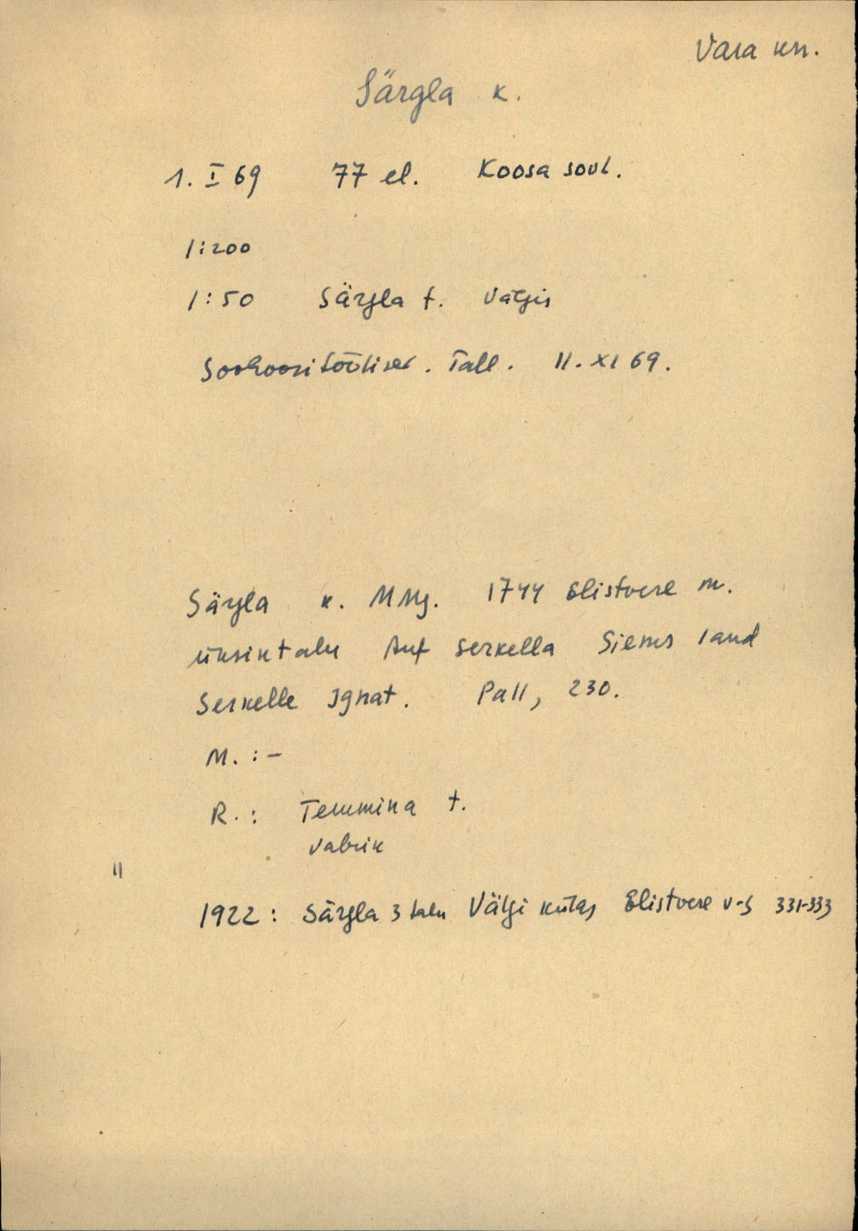 Vara kn.
Särgla k.
1. I 69 77 el. Koosa sovh.
1:200
1:50 Särgla t. Välgis
Sovhoositöölised. Tall. 11. XI 69.
Särgla k. MMg. 1744 Elistvere m.
üksiktalu Auf Serkella Siems land
Serkelle Ignat. Pall, 230.
M. : -
R. : Temmina t.
vabrik
"
1922: Särgla 3 talu Välgi külas Elistvere v-s 331-333